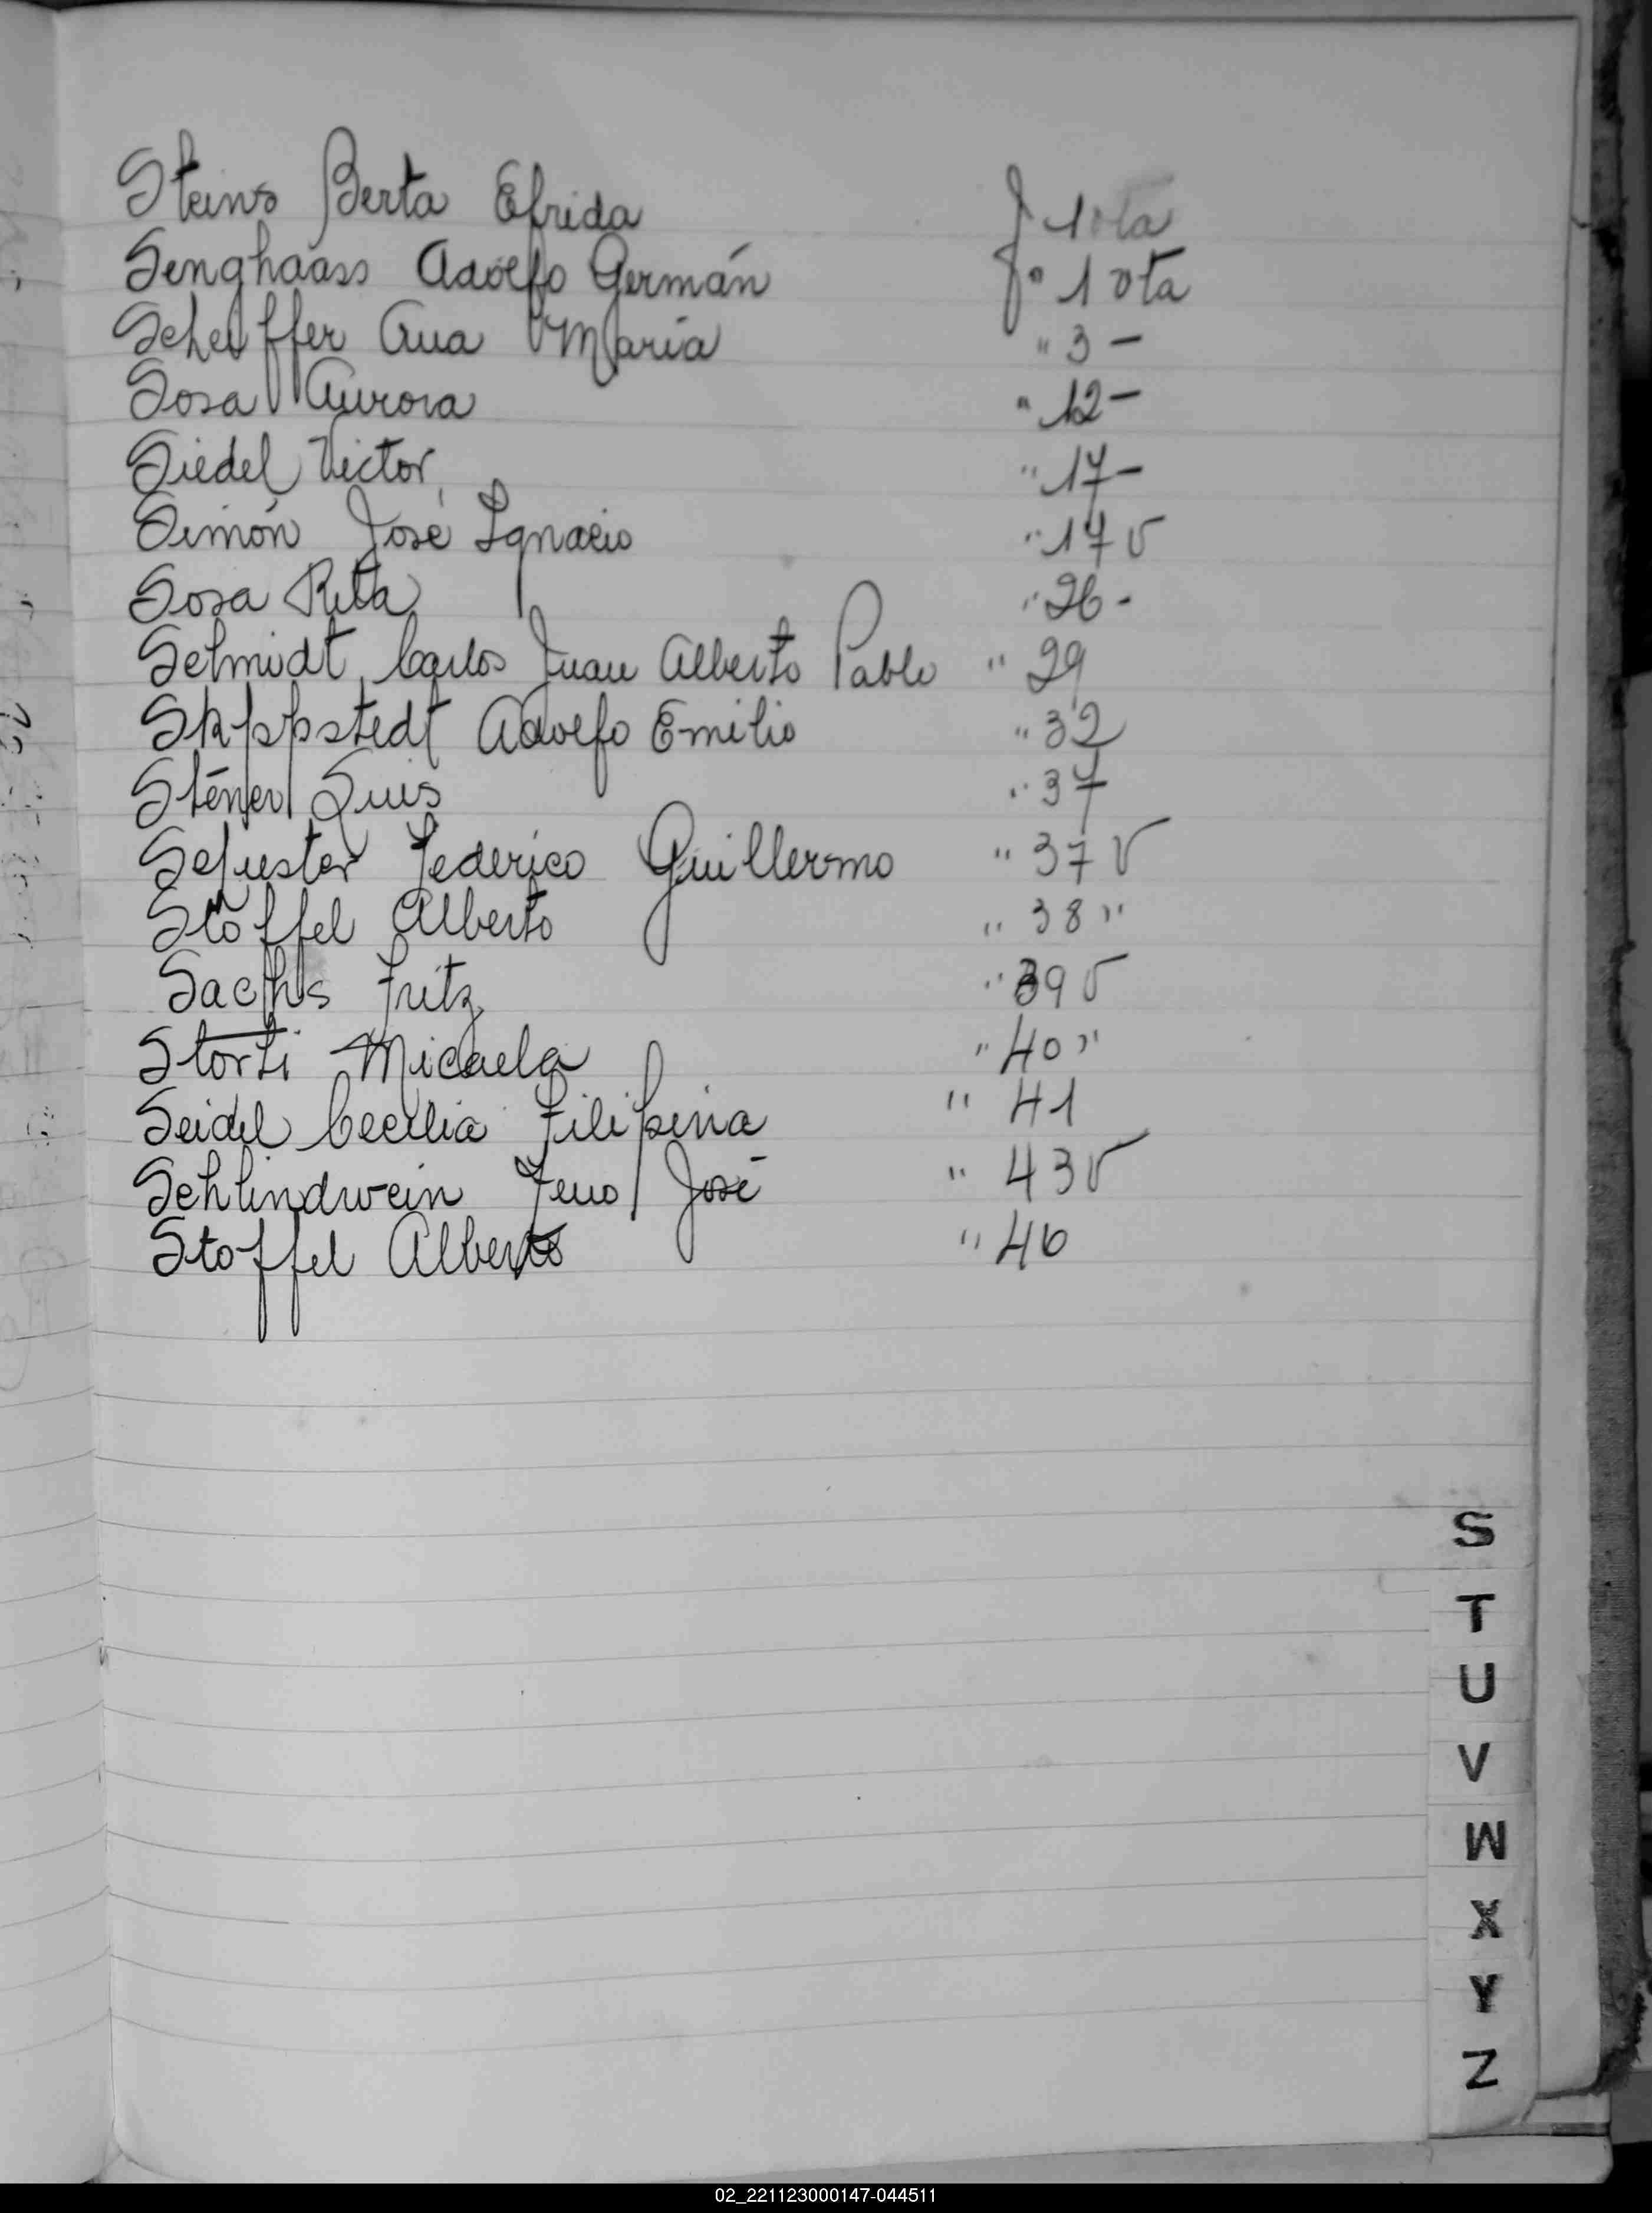 Steins Berta Efrida f 1 ota
Senghaass Adolfo Germán f° 1 ota
Scheiffer Ana María " 3 -
Sosa Aurora " 12 -
Siedel Victor " 17 -
Simón José Ignacio " 17 v
Sosa Rita " 26 -
Schmidt Carlos Juan Alberto Pablo " 29
Skppstedt Adolfo Emilio " 32
Sténer Luis " 37
Schuster Federico Guillermo " 37 v
Stoffel Alberto " 38 "
Sachs Fritz " 39 v
Storti Micaela " 40 "
Seidel Cecilia Filipina " 41
Schlindwein José " 43 v
Stoffel Alberto " 46
S
T
U
V
W
X
Y
Z
02_221123000147-044511